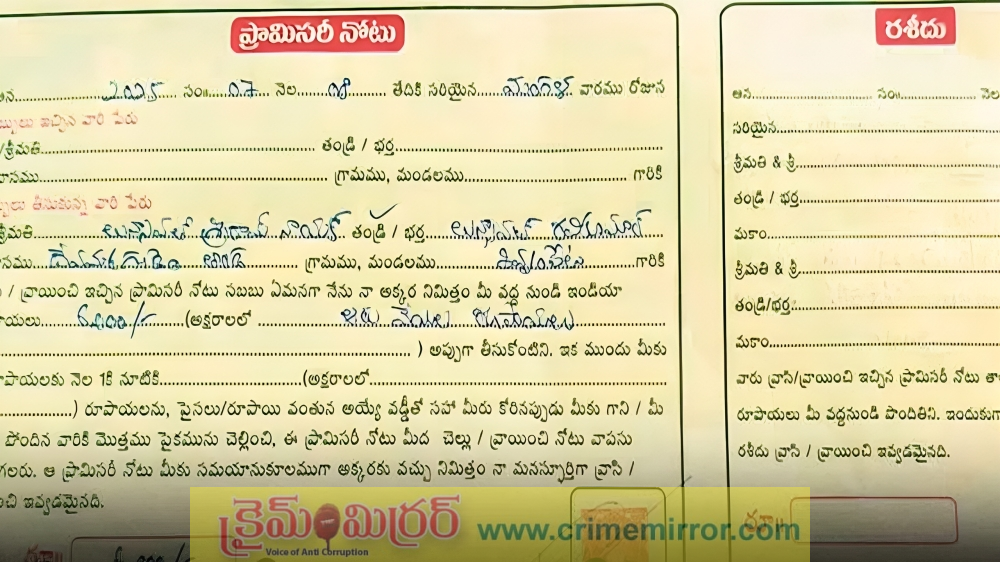 ప్రామిసరీ నోటు
2025 సం॥ 07 నెల 08 తేదికి సరియైన మంగళ వారము రోజున
ఇచ్చిన వారి పేరు
/శ్రీమతి తండ్రి / భర్త
గ్రామము, మండలము గారికి
తీసుకున్న వారి పేరు
శ్రీరామ్ నాయక్ తండ్రి / భర్త
గ్రామము, మండలము గారికి
/ వ్రాయించి ఇచ్చిన ప్రామిసరీ నోటు సబబు ఏమనగా నేను నా అక్కర నిమిత్తం మీ వద్ద నుండి ఇండియా
(అక్షరాలలో వేయిలు రూపాయలు
) అప్పుగా తీసుకోంటిని. ఇక ముందు మీకు
నెల 1కి నూటికి (అక్షరాలలో
) రూపాయలను, పైసలు/రూపాయి వంతున అయ్యే వడ్డీతో సహా మీరు కోరినప్పుడు మీకు గాని / మీ
పొందిన వారికి మొత్తము పైకమును చెల్లించి, ఈ ప్రామిసరీ నోటు మీద చెల్లు / వ్రాయించి నోటు వాపసు
ఆ ప్రామిసరీ నోటు మీకు సమయానుకూలముగా అక్కరకు వచ్చు నిమిత్తం నా మనస్ఫూర్తిగా వ్రాసి /
ఇవ్వడమైనది.
రశీదు
సం
సరియైన
శ్రీమతి & శ్రీ
తండ్రి / భర్త
మకాం
శ్రీమతి & శ్రీ
తండ్రి/భర్త
మకాం
వారు వ్రాసి/వ్రాయించి ఇచ్చిన ప్రామిసరీ నోటు
రూపాయలు మీ వద్దనుండి పొందితిని. ఇందుకుగా
రశీదు వ్రాసి / వ్రాయించి ఇవ్వడమైనది.
రూ॥
క్రైమ్ మిర్రర్
Voice of Anti Corruption
www.crimemirror.com